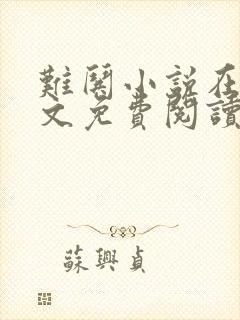 難鬨小説在
文免費閱讀
蘇興貞